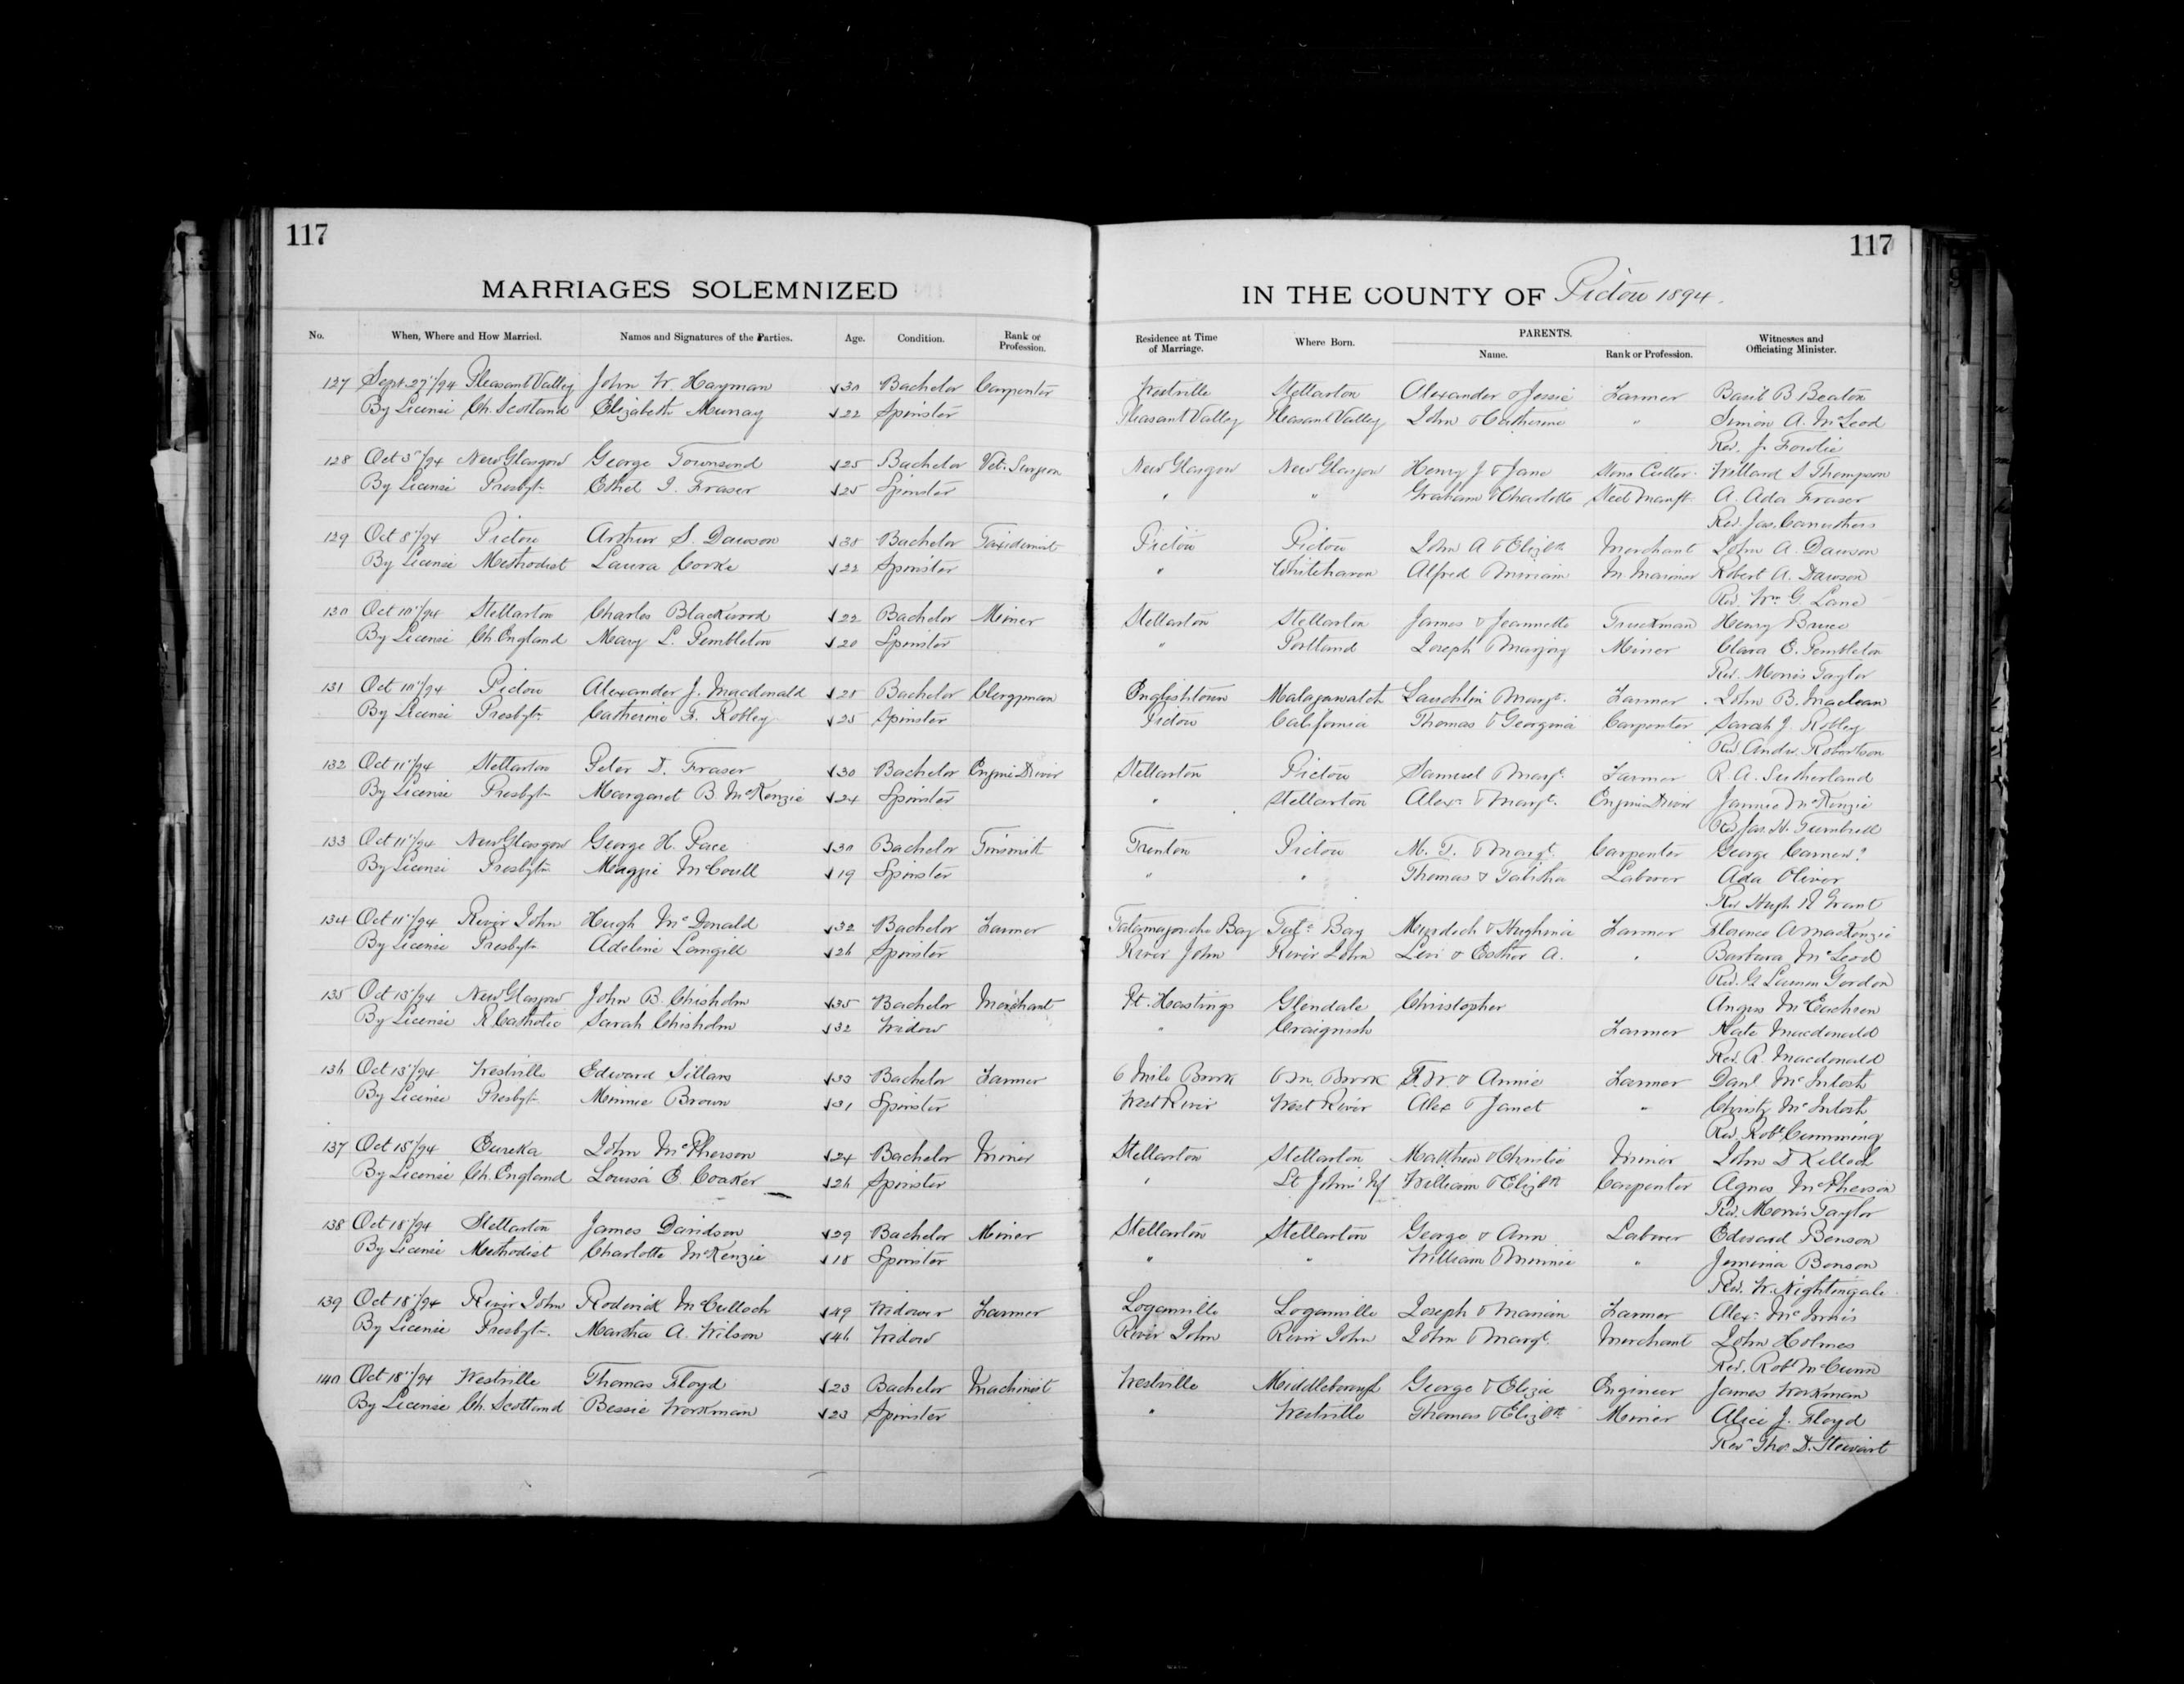 117
117
MARRIAGES SOLEMNIZED IN THE COUNTY OF Pictou 1894.
No. When, Where and How Married. Names and Signatures of the Parties. Age. Condition. Rank or Profession. Residence at Time of Marriage. Where Born. PARENTS. Name. Rank or Profession. Witnesses and Officiating Minister.
127 Sept. 27"/94 Pleasant Valley John W. Hayman 30 Bachelor Carpenter Westville Stellarton Alexander & Jessie Farmer Basil B. Beaton
By License Ch. Scotland Elizabeth Murray 22 Spinster Pleasant Valley Pleasant Valley John & Catherine " Simon A. McLeod
Rev. J. Fowlie
128 Oct 3"/94 New Glasgow George Townsend 25 Bachelor Vet. Surgeon New Glasgow New Glasgow Henry J & Jane Stone Cutter Willard S Thompson
By License Presbytn Ethel I. Fraser 25 Spinster " " Graham & Charlotte Steel Manft. A. Ada Fraser
Rev. Jas. Carruthers
129 Oct 8"/94 Pictou Arthur S. Dawson 38 Bachelor Taxidermist Pictou Pictou John A & Elizth Merchant John A. Dawson
By License Methodist Laura Cooke 22 Spinster " Whitehaven Alfred & Miriam M. Mariner Robert A. Dawson
Rev. Wm. G. Lane
130 Oct 10"/94 Stellarton Charles Blackwood 22 Bachelor Miner Stellarton Stellarton James & Jeannette Truckman Henry Bruce
By License Ch. England Mary L. Pembleton 20 Spinster " Portland Joseph & Marjory Miner Clara E. Pembleton
Rev. Morris Taylor
131 Oct 10"/94 Pictou Alexander J. Macdonald 28 Bachelor Clergyman Englishtown Malagawatch Lauchlin & Margt. Farmer John B. Maclean
By License Presbytn Catherine F. Robley 25 Spinster Pictou California Thomas & Georgina Carpenter Sarah J. Robley
Rev. Andw. Robertson
132 Oct 11"/94 Stellarton Peter D. Fraser 30 Bachelor Engine Driver Stellarton Pictou Samuel & Margt. Farmer R. A. Sutherland
By License Presbytn Margaret B. McKenzie 24 Spinster " Stellarton Alexr. & Margt. Engine Driver Jannie McKenzie
Rev. Jas. H. Turnbull
133 Oct 11"/94 New Glasgow George H. Pace 30 Bachelor Tinsmith Trenton Pictou M. T. & Margt. Carpenter George Carnew?
By License Presbytn Maggie McCoull 19 Spinster " " Thomas & Tabitha Laborer Ada Oliver
Rev. Hugh R Grant
134 Oct 11"/94 River John Hugh McDonald 32 Bachelor Farmer Tatamagouche Bay Tat. Bay Murdoch & Hughina Farmer Florence A MacKenzie
By License Presbytn Adeline Langill 26 Spinster River John River John Levi & Esther A. " Barbara McLeod
Rev. G Lawson Gordon
135 Oct 15"/94 New Glasgow John B. Chisholm 35 Bachelor Merchant Pt. Hastings Glendale Christopher Angus McEachren
By License R Catholic Sarah Chisholm 32 Widow " Craignish Farmer Kate Macdonald
Rev. R. Macdonald
136 Oct 15"/94 Westville Edward Sillars 33 Bachelor Farmer 6 Mile Brook 6 m. Brook F. W. & Annie Farmer Danl McIntosh
By License Presbyt. Minnie Brown 31 Spinster West River West River Alex & Janet " Christy McIntosh
Rev. Robt Cumming
137 Oct 15"/94 Eureka John McPherson 24 Bachelor Miner Stellarton Stellarton Matthew & Christie Miner John D Kelloch
By License Ch. England Louisa E. Coaker 26 Spinster " St Johns Nf William & Elizth Carpenter Agnes McPherson
Rev. Morris Taylor
138 Oct 18"/94 Stellarton James Davidson 29 Bachelor Miner Stellarton Stellarton George & Ann Laborer Edward Benson
By License Methodist Charlotte McKenzie 18 Spinster " " William & Minnie " Jemima Benson
Rev. W. Nightingale
139 Oct 18"/94 River John Roderick McCulloch 49 Widower Farmer Loganville Loganville Joseph & Marian Farmer Alexr. McInnis
By License Presbytn. Martha A. Wilson 46 Widow River John River John John & Margt. Merchant John Holmes
Rev. Robt McCunn
140 Oct 18"/94 Westville Thomas Floyd 23 Bachelor Machinist Westville Middleborough George & Eliza Engineer James Workman
By License Ch. Scotland Bessie Workman 23 Spinster " Westville Thomas & Elizth Miner Alice J. Floyd
Revd Thos. D. Stewart